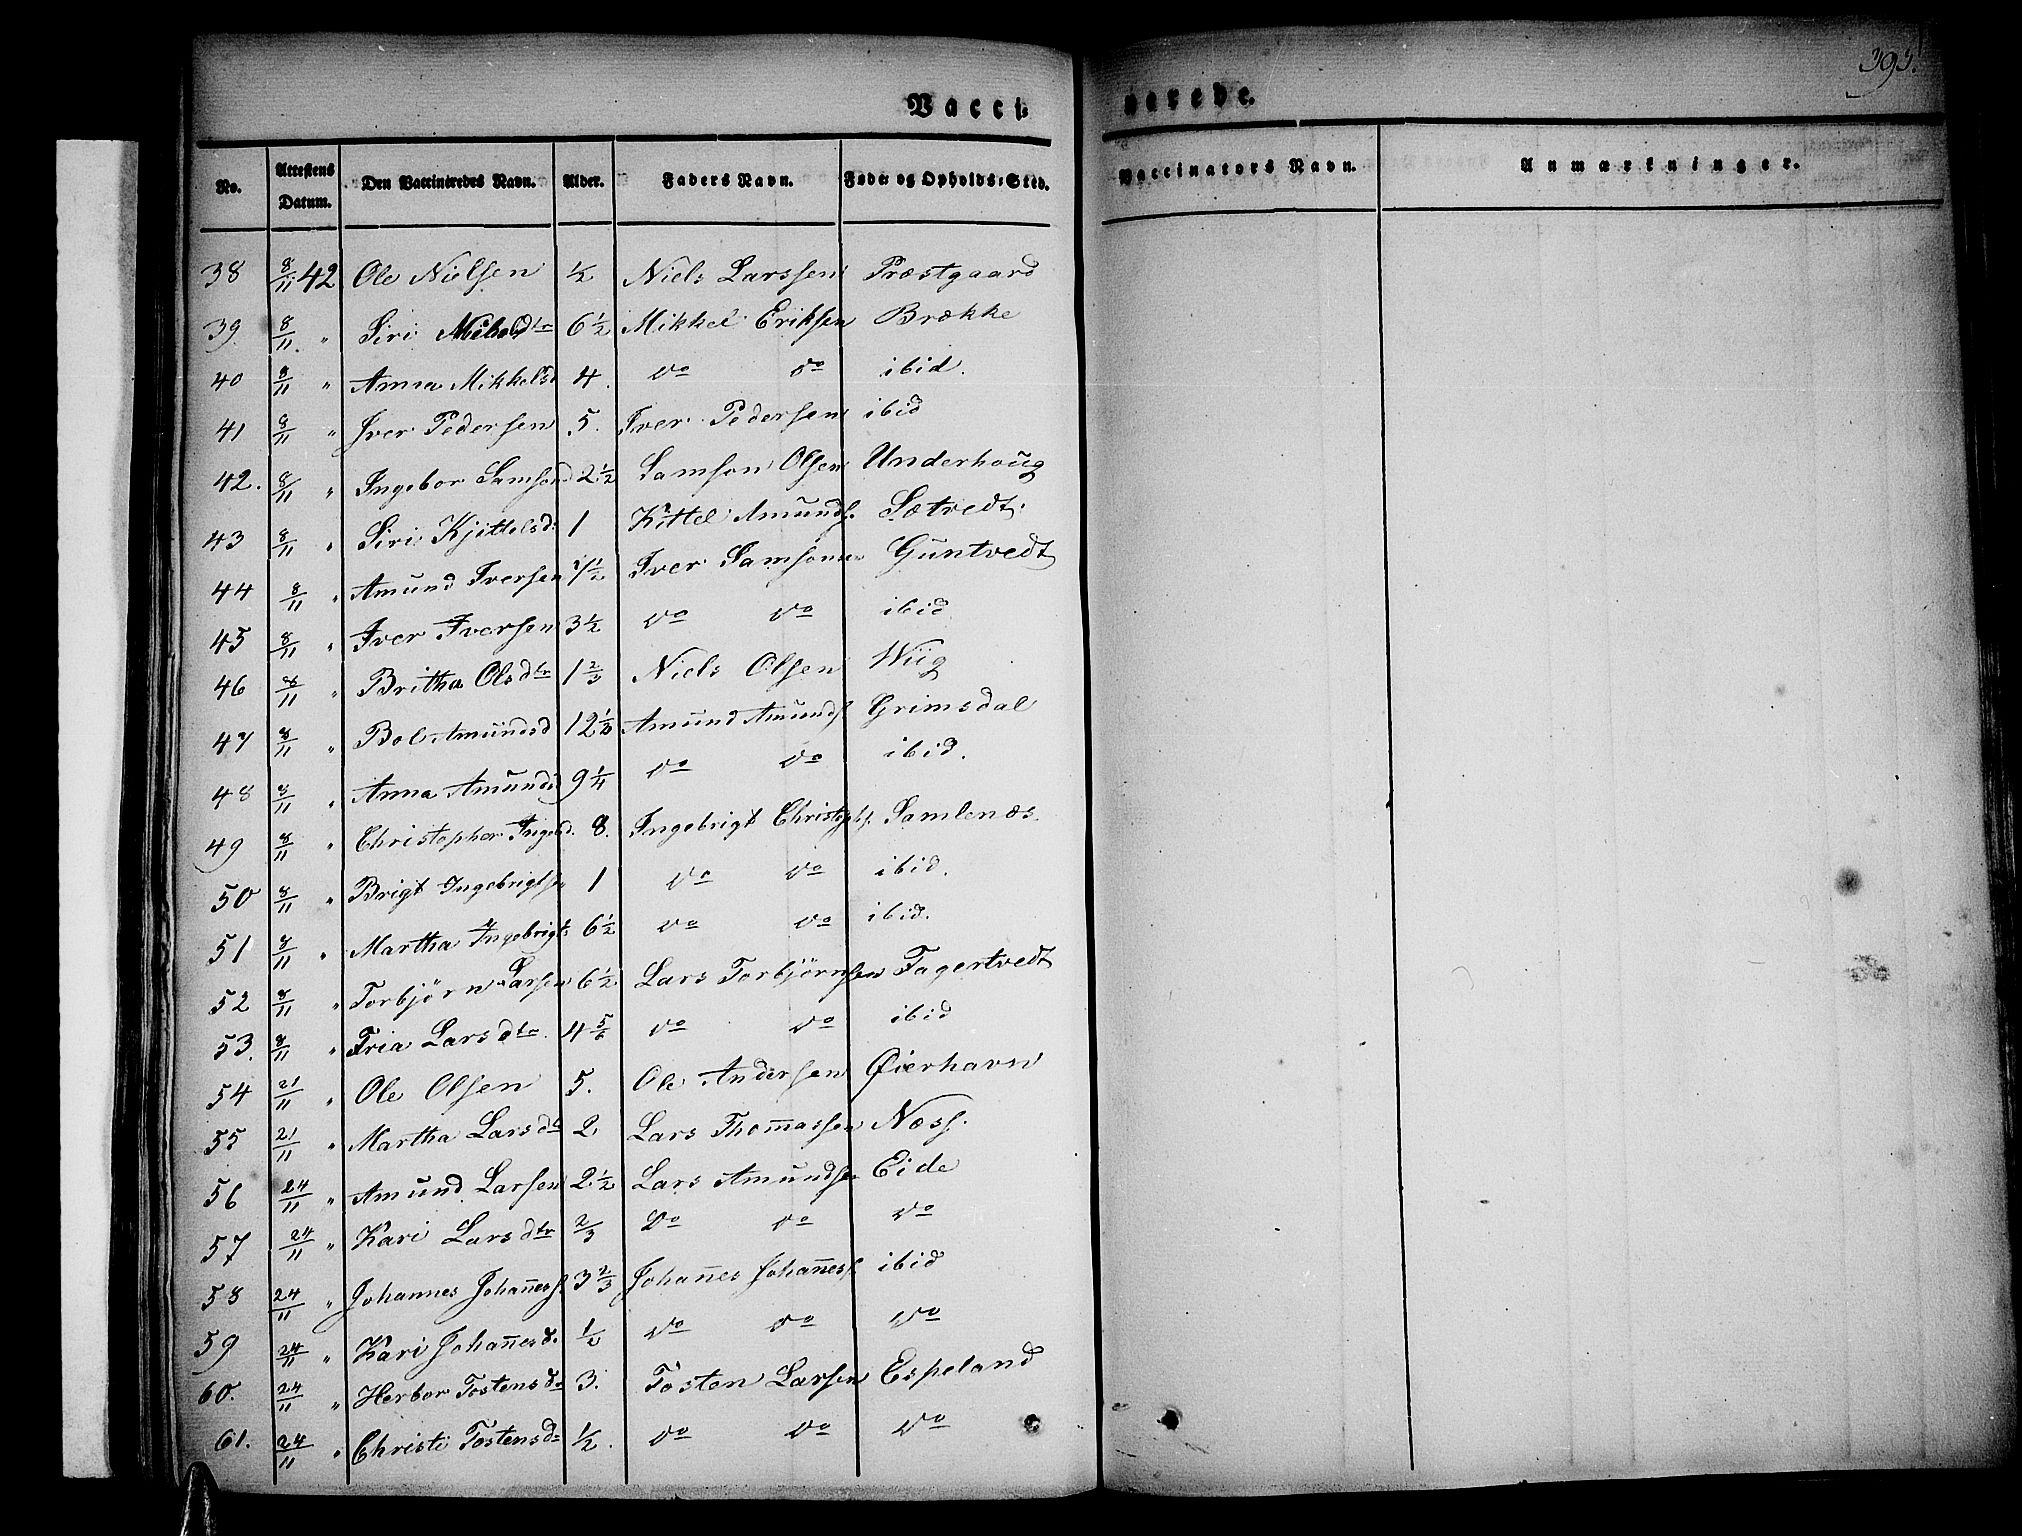 395.
Vacci-
nerede.
No. Attestens Datum. Den Vaccineredes Navn. Alder. Faders Navn. Føde og Opholds-Sted. Vaccinators Navn. Anmærkninger.
38 8/11 42 Ole Nielsen 1/2 Niels Larssen Præstgaard
39 8/11 " Siri 6 1/2 Mikkel Eriksen Brække
40 8/11 " Anna Mikkelsd 4. do do ibid.
41 8/11 " Iver Pedersen 5. Iver Pedersen ibid
42. 8/11 " Ingebor Samsond 2 1/2 Samson Olsen Underhoug
43 8/11 " Siri Kjittelsd: 1 Kittel Amunds. Sætvedt.
44 8/11 " Amund Iversen Iver Samsonsen Guntvedt
45 8/11 " Iver Iversen 3 1/2 do do ibid
46 8/11 " Britha Olsdtr 1 2/3 Niels Olsen Wiig
47 8/11 " Bol Amundsd 12 1/2 Amund Amunds Grimsdal
48 8/11 " Anna Amundsd 9 1/4 do do ibid.
49 8/11 " Christopher Ingebr. 8. Ingebrigt Christophs. Samlenæs.
50 8/11 " Brigt Ingebrigtsen 1 do do ibid.
51 8/11 " Martha Ingebrigts 6 1/2 do do ibid.
52 8/11 " Torbjørn Larsen 6 1/2 Lars Torbjørnsen Fagertvedt
53. 8/11 " Larsdtr. 4 5/6 do do ibid
54 21/11 " Ole Olsen 5. Ole Andersen Øierhavn
55 21/11 " Martha Larsdtr 2 Lars Thom̄assen Næss.
56 24/11 " Amund Larsen 2 1/2 Lars Amundsen Eide
57 24/11 " Kari Larsdtr 2/3 Do do do
58 24/11 " Johannes Johan̄ess 3 2/3 Johan̄es Johan̄ess. ibid
59 24/11 " Kari Johan̄esd. 1/2 do do do
60. 24/11 " Herbor Tostensdr 3. Tosten Larsen Espeland
61. 24/11 " Christi Tostensdr 1/2. do do do